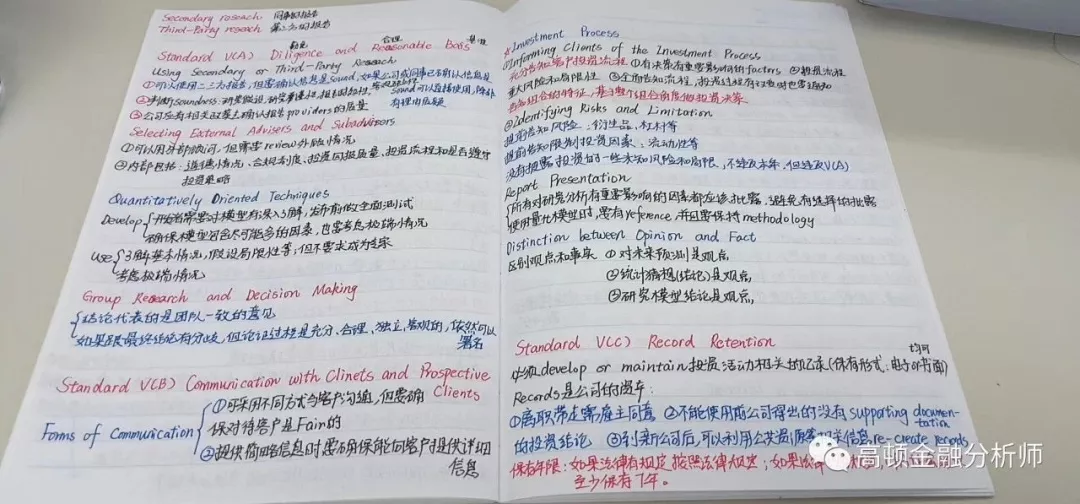 Secondary reseach 同事的报告
Third-Party reseach 第三方的报告
勤勉 合理 基础
Standard V(A) Diligence and Reasonable Basis
Using Secondary or Third-Party Research
①可以使用二、三方报告,但需要确认信息是sound,如果公司或同事已确认信息是
sound可以直接使用,除非
②判断soundness:研究假设,研究掌握性,报告时效性,客观独立性
有理由质疑
③公司应有相关政策去确认报告providers的质量
Selecting External Advisers and Subadvisors
①可以用外部顾问,但需要review外版情况
②内部包括:道德情况、合规制度、投资回报质量、投资流程和是否遵守
投资策略
Quantitatively Oriented Techniques
Develop 开发者需要对模型有深入了解,发布前做全面测试
确保模型包含尽可能多的因素,也需考虑极端情况
Use 了解基本情况,假设局限性等,但不要求成为专家
考虑极端情况
Group Research and Decision Making
结论代表的是团队一致的意见
如果跟最终结论有分歧,但论证过程是充分、合理、独立、客观的,依然可以
署名
Standard V(B) Communication with Clinets and Prospective
Clients
Forms of Communication
①可采用不同方式与客户沟通,但需要确
保对待客户是Fair的
②提供简略信息时要确保能向客户提供详细
信息
*Investment Process
①Informing Clients of the Investment Process
充分告知客户投资流程 ①有决策有重要影响的factors ②投资流程
重大风险和局限性 ③全面告知流程,投资过程有改变时也要通知
告知组合的特征,基于整个组合角度做投资决策
②Identifying Risks and Limitation
提前告知风险:衍生品,杠杆等
提前告知限制投资因素:流动性等
没有披露投资的一些未知风险和局限,不违反本年,但违反V(A)
Report Presentation
所有对研究分析有重要影响的因素都应该披露,避免有选择的披露
使用量化模型时,要有reference,并且要保持methodology
Distinction between Opinion and Fact
区别观点和事实 ①对未来预测是观点,
②统计猜想(结论)是观点,
③研究模型结论是观点,
Standard V(C) Record Retention
均可
必须develop or maintain投资活动相关的记录(保存形式:电子or书面)
Records是公司的资产:
①离职带走需雇主同意 ②不能使用前公司得出的没有supporting documen-
tation
的投资结论 ③到新公司后,可以利用公共资源等相关信息re-create records
保存年限:如果法律有规定,按照法律规定;如果法律
至少保存7年。
高顿金融分析师